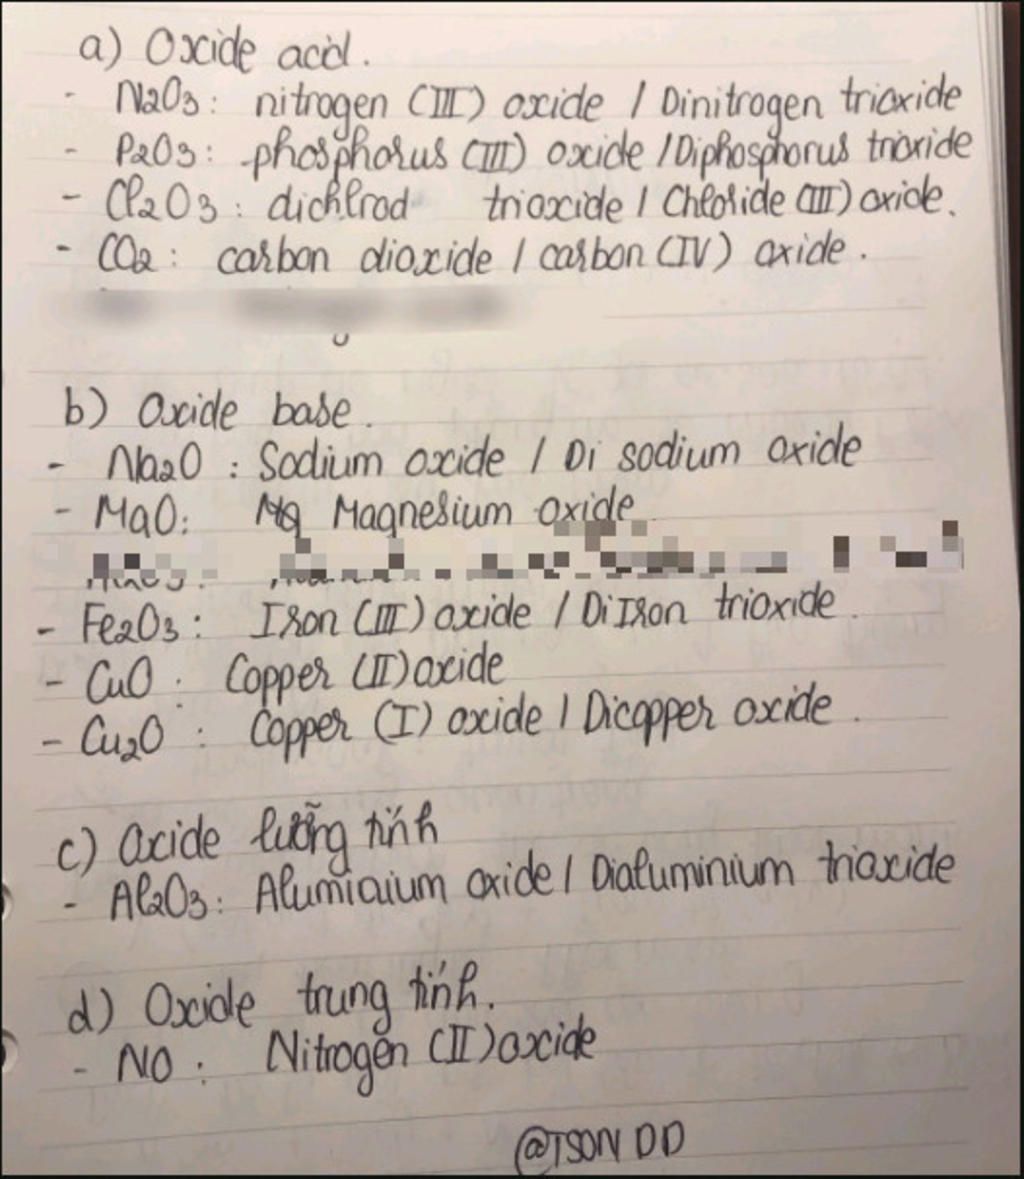 a) Oxide acid.
- N2O3: nitrogen (III) oxide / Dinitrogen trioxide
- P2O3: phosphorus (III) oxide / Diphosphorus trioxide
- Cl2O3: dichlrod trioxide / Chloride (III) oxide.
- CO2: carbon dioxide / carbon (IV) oxide.
b) Oxide base.
- Na2O: Sodium oxide / Di sodium oxide
- MgO: Magnesium oxide
- Fe2O3: Iron (III) oxide / DiIron trioxide.
- CuO: Copper (II) oxide
- Cu2O: Copper (I) oxide / Dicopper oxide.
c) Oxide lưỡng tính
- Al2O3: Aluminium oxide / Dialuminium trioxide
d) Oxide trung tính.
- NO: Nitrogen (II) oxide
@TSON DD